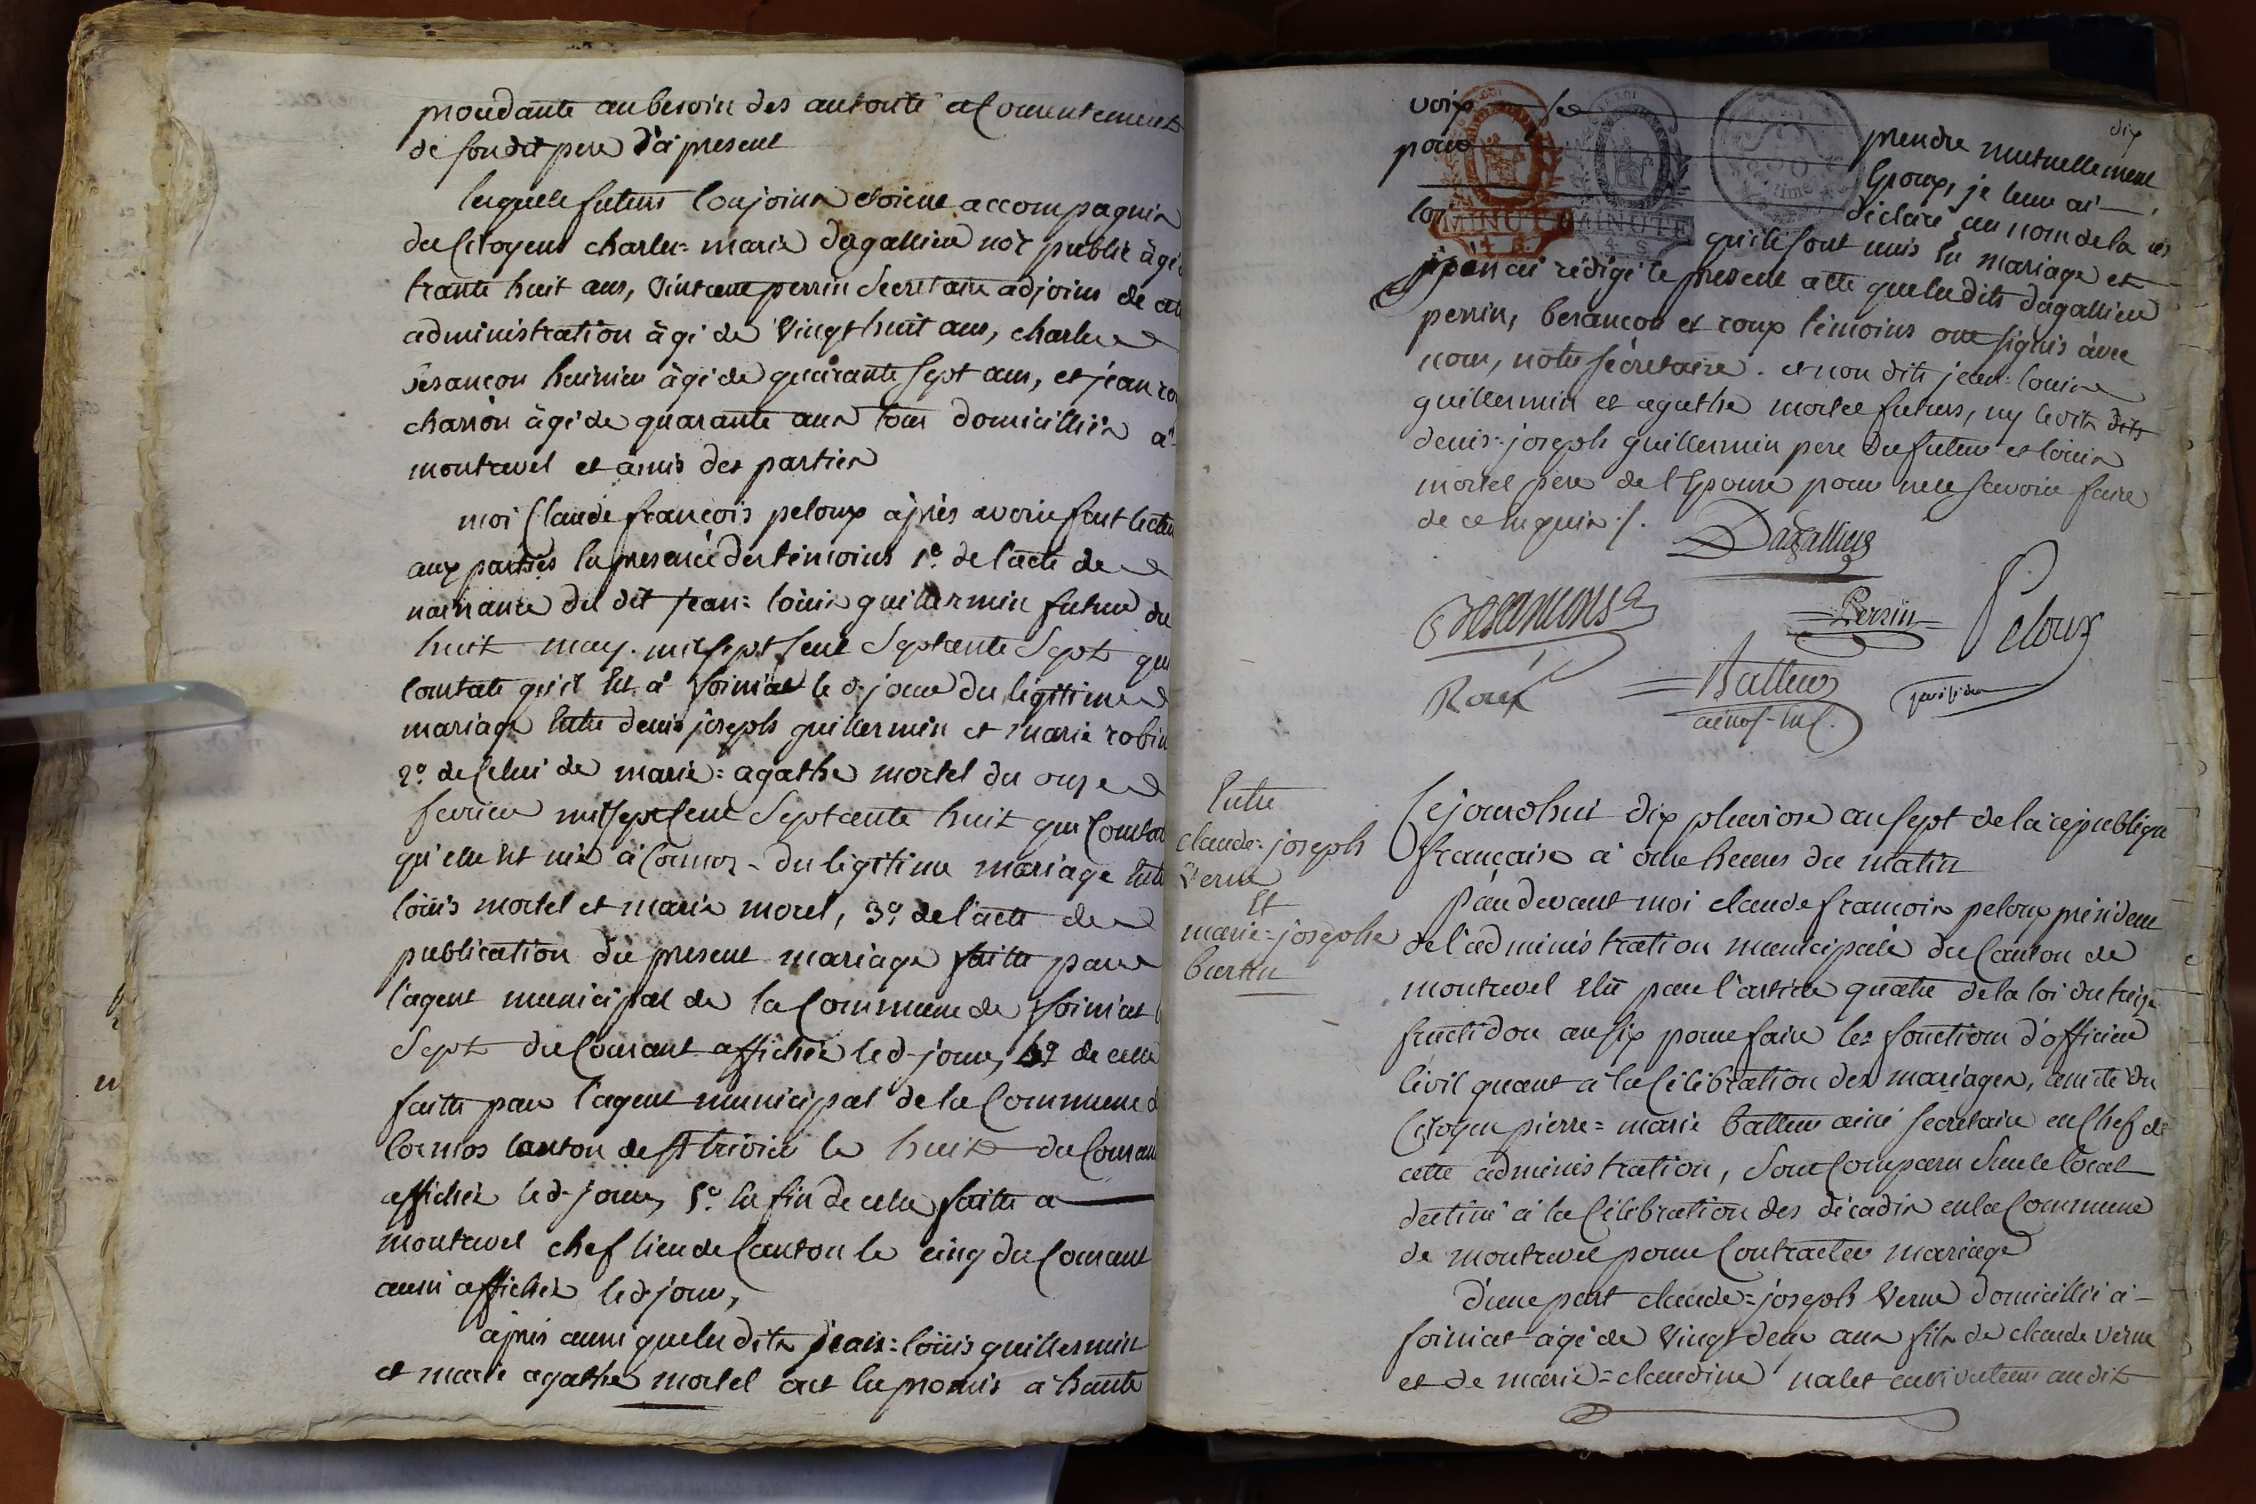 procedante au besoin des autorité et consentement
de son dit pere d'ci present
lesquels futurs conjoins étoient accompagnés
des citoyens charles=marie dagallier noʳᵉ public âgé
trante huit ans, vincent perrin secretaire adjoins de
administration âgé de vingt huit ans, charles
besançon huissier âgé de quarante sept ans, et jean
charron âgé de quarante ans tous domicilliés a
montrevel et amis des parties
moi Claude françois peloux âprès avoir fait lecture
aux parties en presence des témoins 1º. de l'acte de
naissance du dit jean=loüis guillermin futur du
huit may mil sept cent septante sept qui
constate qu'il est né a foissiat le d. jour du légitime
mariage entre denis joseph guillermin et marie robin
2º. de celui de marie=agathe mortel du onze
fevrier mil sept cent septante huit qui constate
qu'elle est née à cormoz du légitime mariage entre
loüis mortel et marie morel, 3º. de l'acte de
publication du present mariage faite par
l'agent municipal de la Commune de foissiat le
sept du Courant affichée led. jour, 4º de celle
faite par l'agent municipal de la Commune de
Cormos canton de St trivier le huit du Courant
affichée led. jour, 5º. en fin de celle faite a
montrevel chef lieu de Canton le cinq du Courant
aussi affichée led. jour,
âprès aussi que les dits jean=loüis guillermin
et marie agathe mortel ont eu promis a haute
dix
voix se prendre mutuellement
pour Epoux, je leur ai
déclaré au nom de la
loi qu'ils sont unis en mariage et
j'en ai rédigé le present acte que les dits dagallier
perrin, besançon et roux témoins ont signés âvec
nous, notre sécretaire. et non dits jean=louis
guillermin et agathe mortel futurs, ny lesdits dits
denis=joseph guillermin pere du futur et loüis
mortel pere de l'Epouse pour ne savoir faire
de ce enquis ./.
Dagallier
Besançons
Perrin
Peloux
Roux
Batteur
ainé s. en c.
président
Entre
claude=joseph
verne
Et
marie=josephe
burtin
Cejourdhui dix pluviose an sept de la république
française à onze heures du matin
Pardevant moi claude françois peloux président
de l'administration municipale du Canton de
montrevel élu par l'article quatre de la loi du treize
fructidor an six pour faire les fonctions d'officier
Civil quant a la Célébration des mariages, assisté du
Citoyen pierre=marie batteur ainé secretaire en Chef de
cette administration, sont Comparu sur le local
destiné a la Célébration des décadis en la Commune
de montrevel pour Contracter mariage
d'une part claude=joseph verne domicillié a
foissiat âgé de vingt deux ans fils de claude verne
et de marie=claudine nalet cultivateurs audit